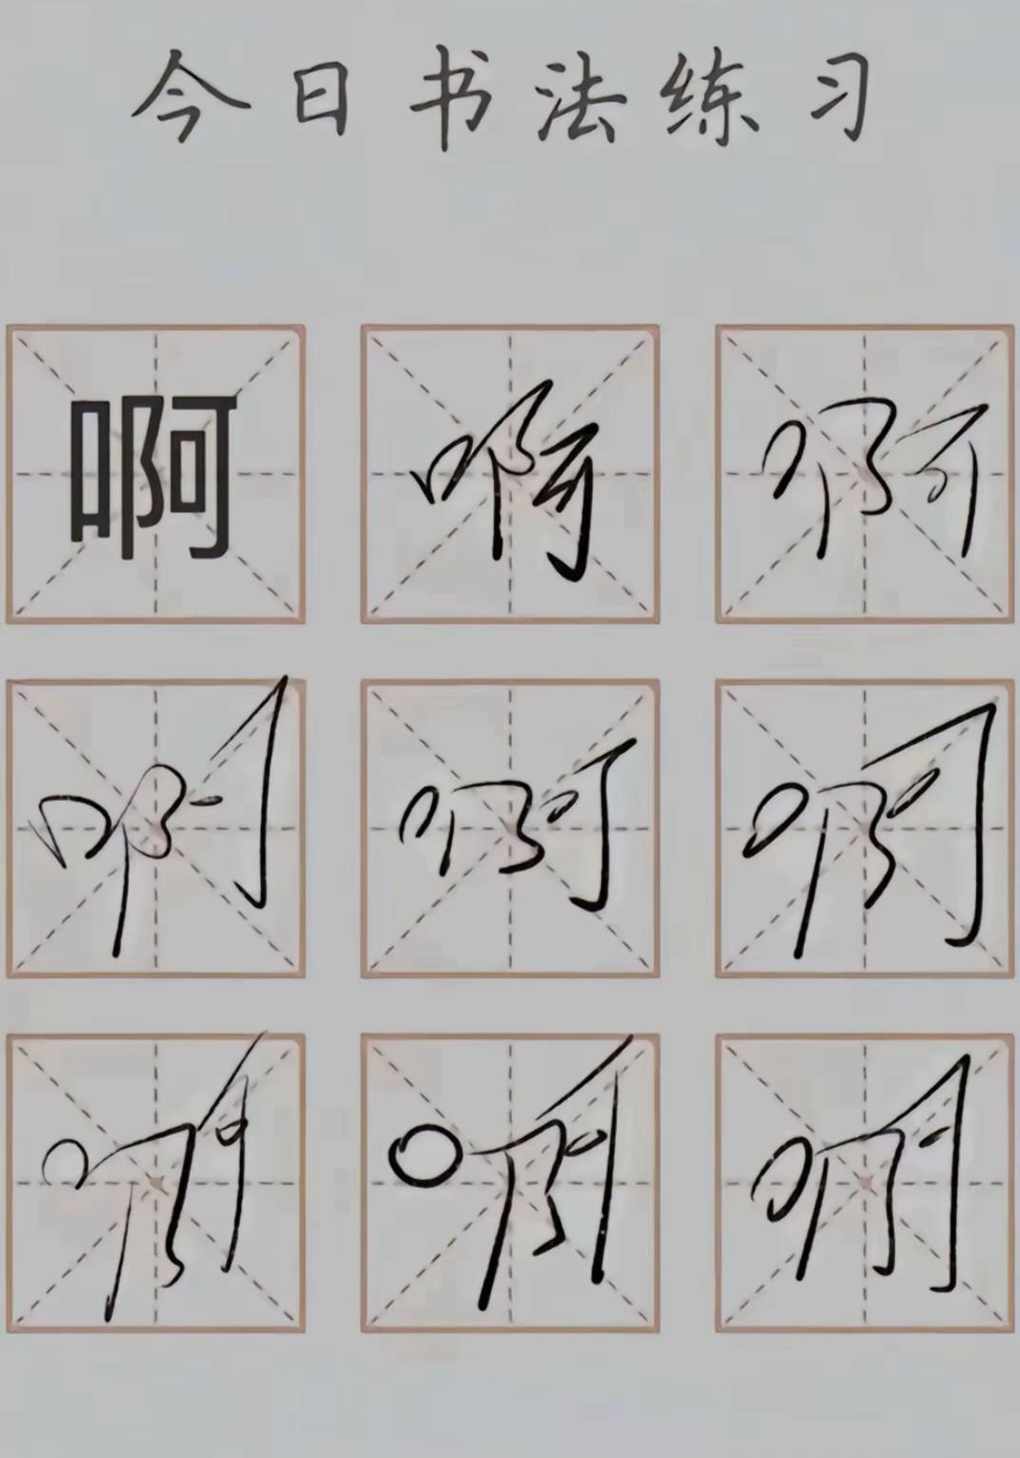 今日书法练习
啊 啊 啊
啊 啊 啊
啊 啊 啊